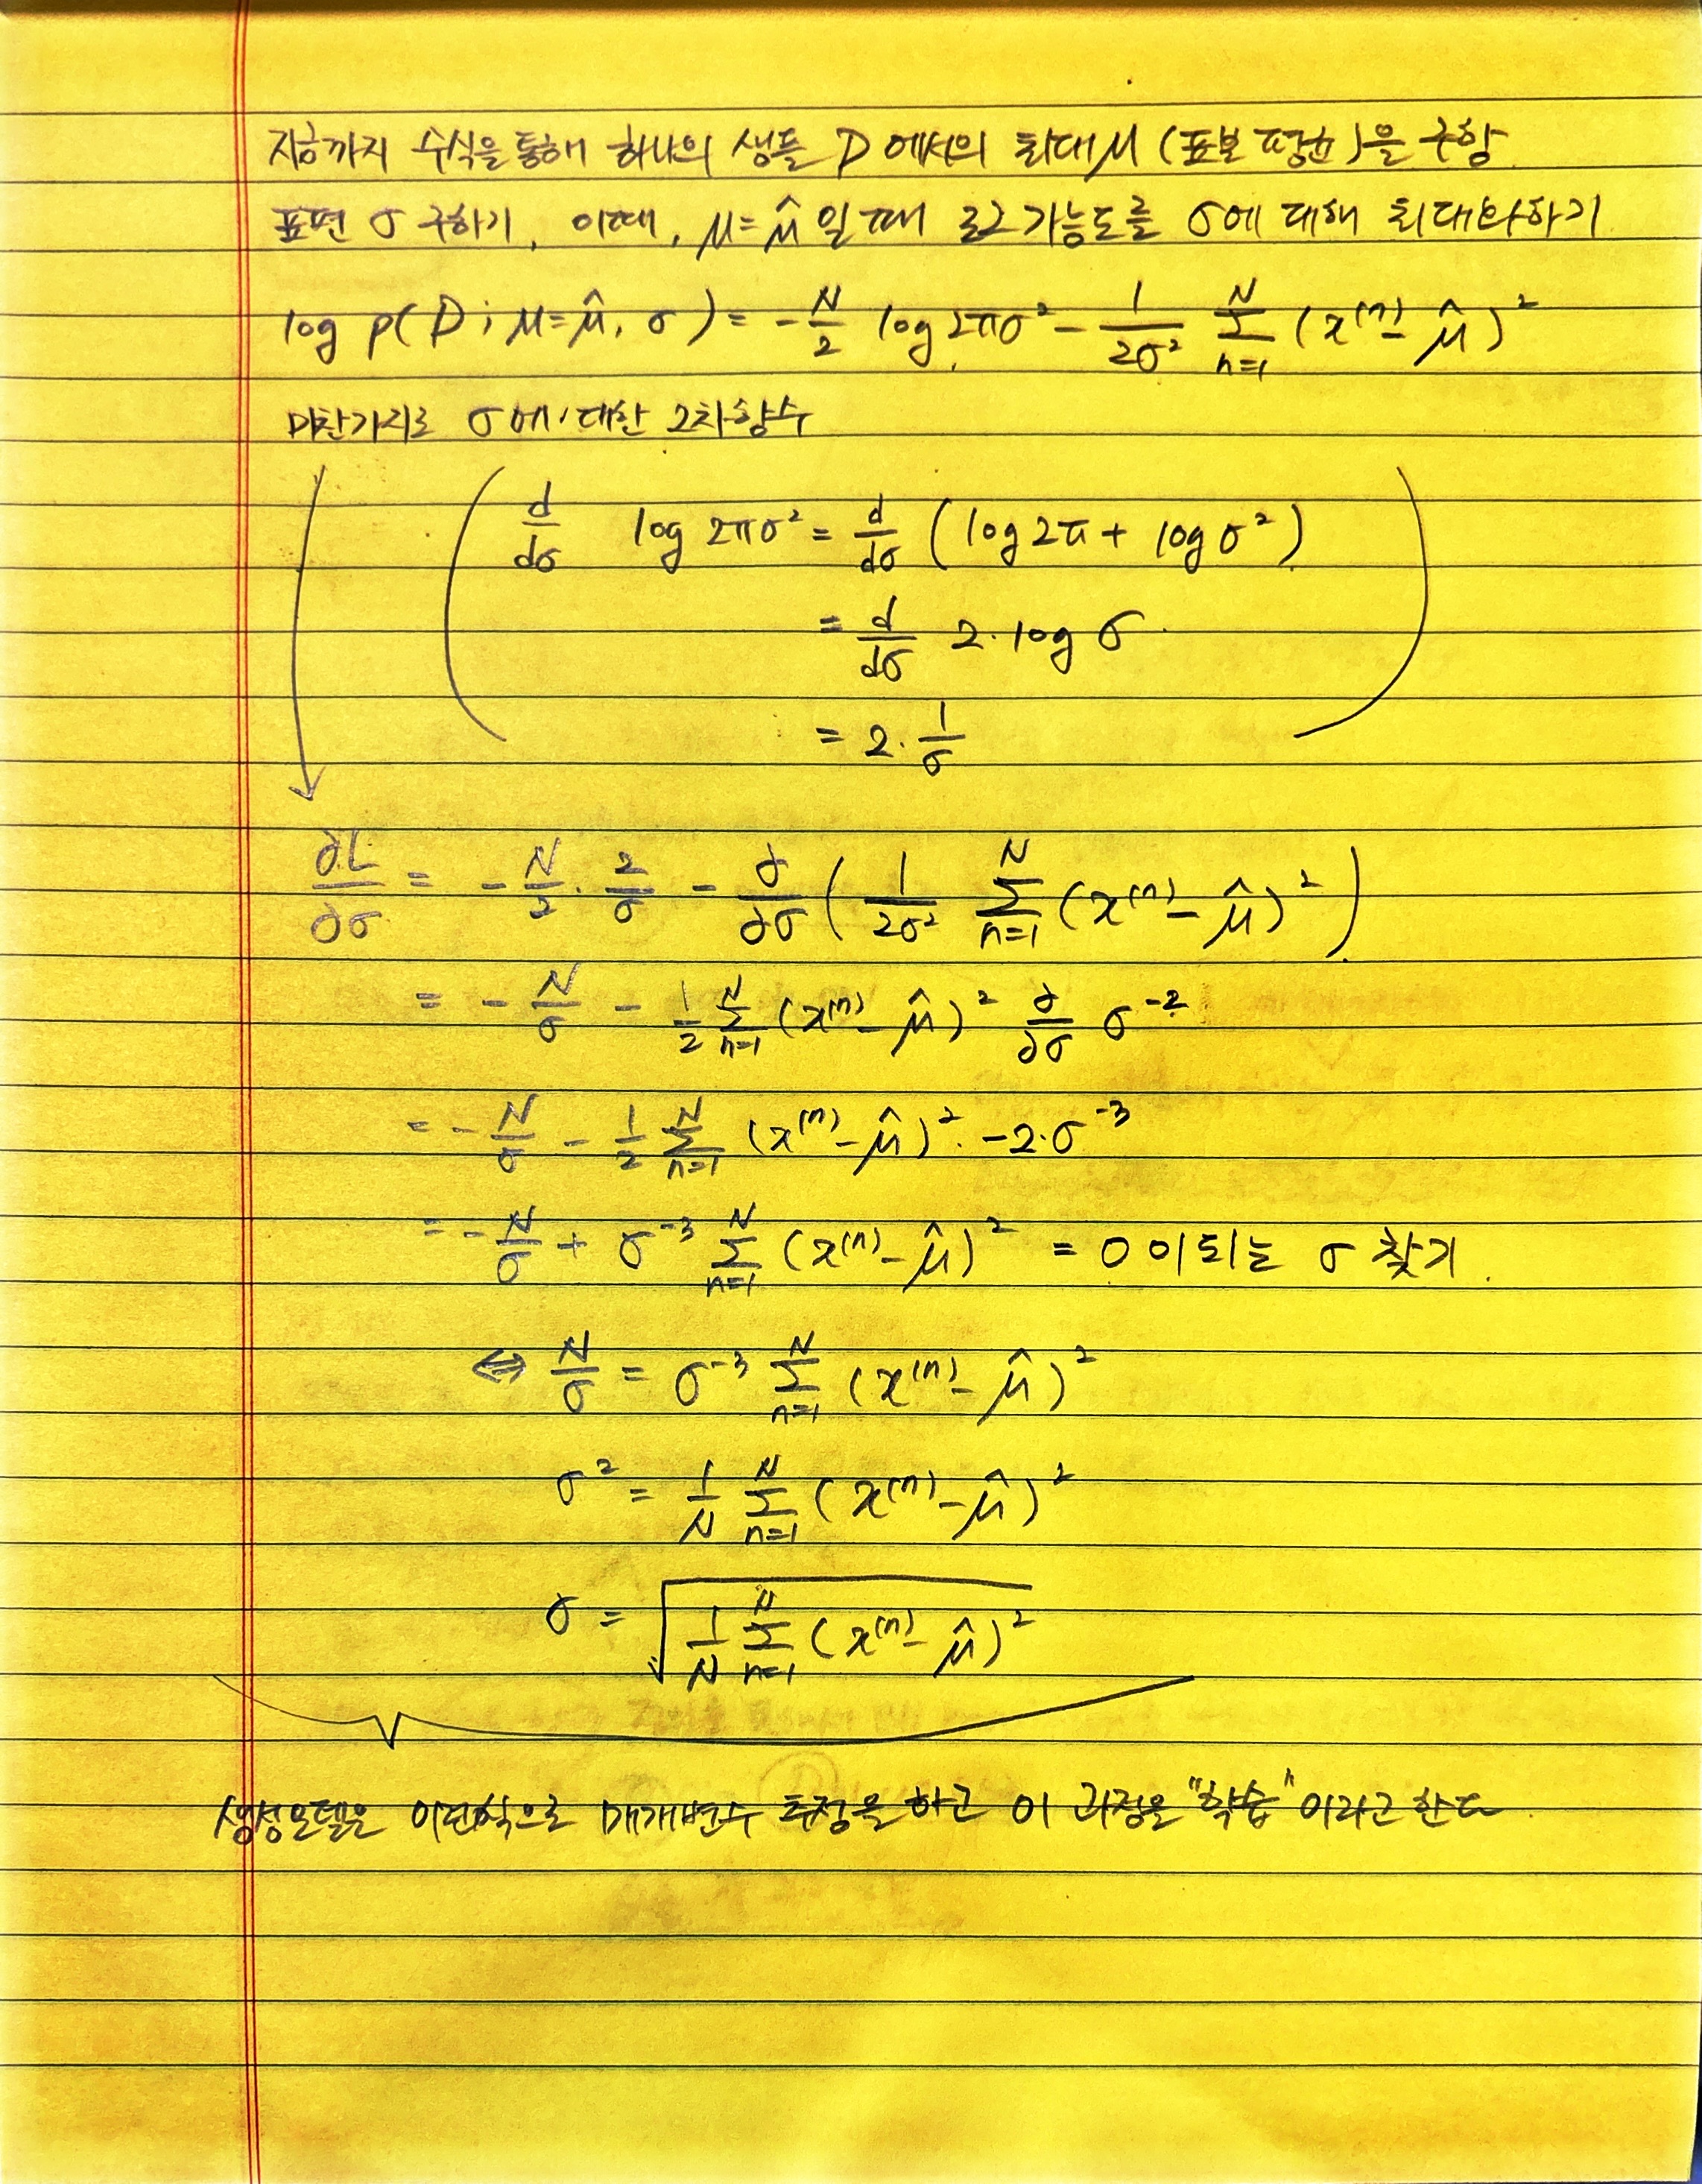 지금까지 수식을 통해 하나의 샘플 D에서의 최대 μ (표본 평균)을 구함.
표편 σ 구하기, 이때, μ=μ̂ 일 때 로그 가능도를 σ에 대해 최대화하기
log p(D; μ=μ̂, σ) = -N/2 log 2πσ² - 1/(2σ²) Σ_{n=1}^{N} (x⁽ⁿ⁾ - μ̂)²
마찬가지로 σ에 대한 2차함수
( d/dσ log 2πσ² = d/dσ (log 2π + log σ²)
= d/dσ 2·log σ
= 2·1/σ )
∂L/∂σ = -N/2 · 2/σ - ∂/∂σ ( 1/(2σ²) Σ_{n=1}^{N} (x⁽ⁿ⁾ - μ̂)² )
= -N/σ - 1/2 Σ_{n=1}^{N} (x⁽ⁿ⁾ - μ̂)² ∂/∂σ σ⁻²
= -N/σ - 1/2 Σ_{n=1}^{N} (x⁽ⁿ⁾ - μ̂)² · -2·σ⁻³
= -N/σ + σ⁻³ Σ_{n=1}^{N} (x⁽ⁿ⁾ - μ̂)² = 0 이 되는 σ 찾기.
⇔ N/σ = σ⁻³ Σ_{n=1}^{N} (x⁽ⁿ⁾ - μ̂)²
σ² = 1/N Σ_{n=1}^{N} (x⁽ⁿ⁾ - μ̂)²
σ = √( 1/N Σ_{n=1}^{N} (x⁽ⁿ⁾ - μ̂)² )
생성모델은 이런식으로 매개변수 추정을 하고 이 과정을 "학습"이라고 한다.